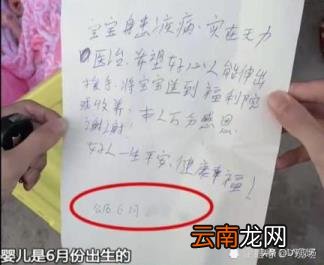 宝宝身患疾病,实在无力
医治,希望好心人能伸出
援手,将宝宝送到福利院
或收养,本人万分感恩
谢谢!
好人一生平安,健康幸福!
公历6月
婴儿是6月份出生的
云南龙网